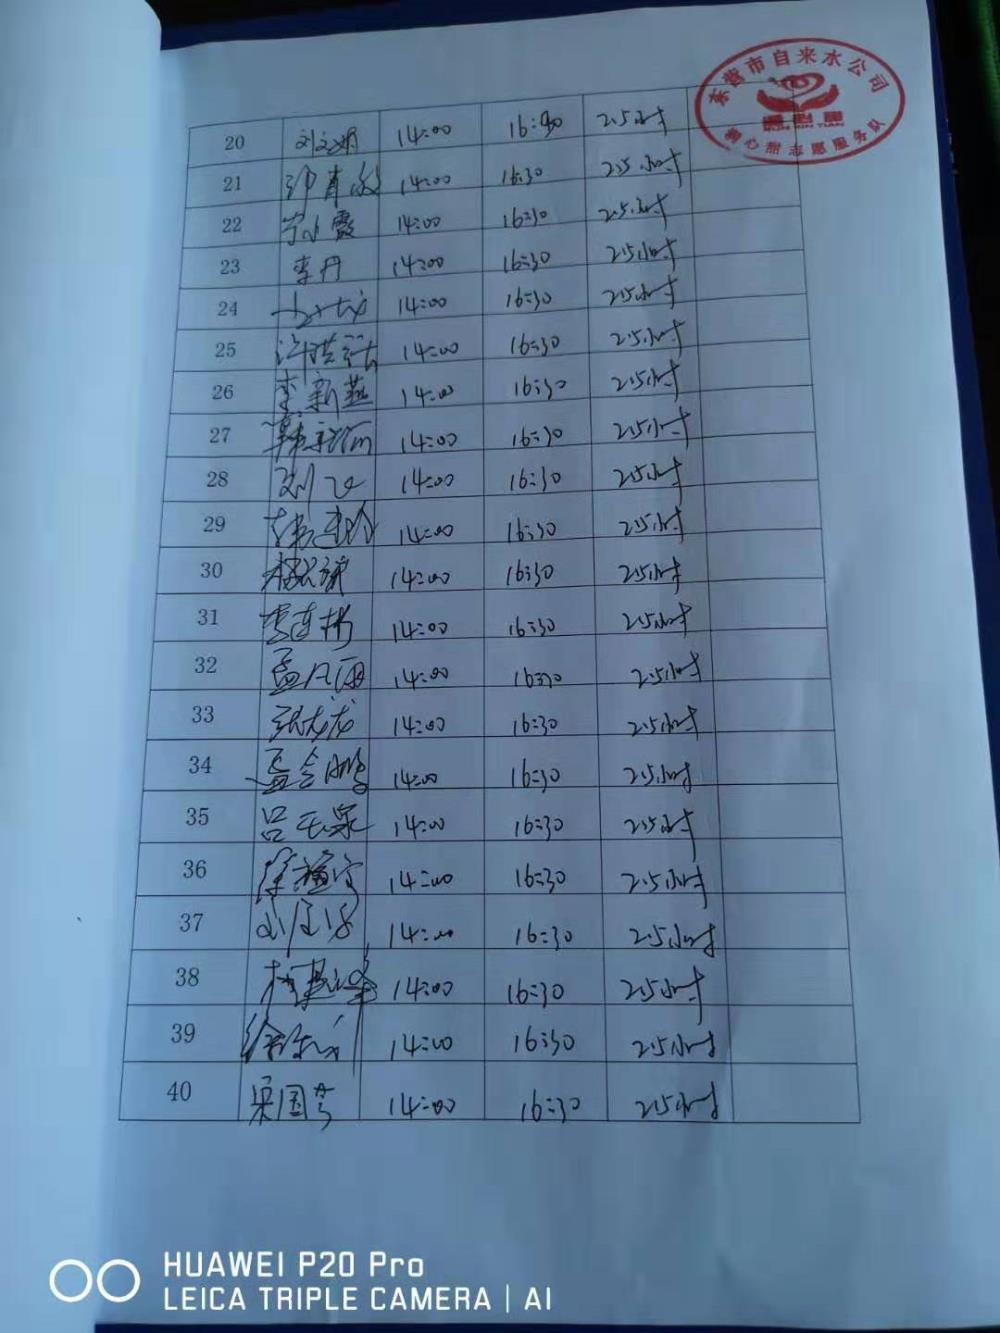 东营市自来水公司
润心甜
RUN XIN TIAN
润心甜志愿服务队
20 刘文娟 14:00 16:30 2.5小时
21 14:00 16:30 2.5小时
22 小霞 14:00 16:30 2.5小时
23 李丹 14:00 16:30 2.5小时
24 14:00 16:30 2.5小时
25 14:00 16:30 2.5小时
26 李新燕 14:00 16:30 2.5小时
27 14:00 16:30 2.5小时
28 刘飞 14:00 16:30 2.5小时
29 14:00 16:30 2.5小时
30 14:00 16:30 2.5小时
31 14:00 16:30 2.5小时
32 14:00 16:30 2.5小时
33 张龙龙 14:00 16:30 2.5小时
34 14:00 16:30 2.5小时
35 吕玉泉 14:00 16:30 2.5小时
36 14:00 16:30 2.5小时
37 14:00 16:30 2.5小时
38 14:00 16:30 2.5小时
39 14:00 16:30 2.5小时
40 梁国芳 14:00 16:30 2.5小时
HUAWEI P20 Pro
LEICA TRIPLE CAMERA | AI